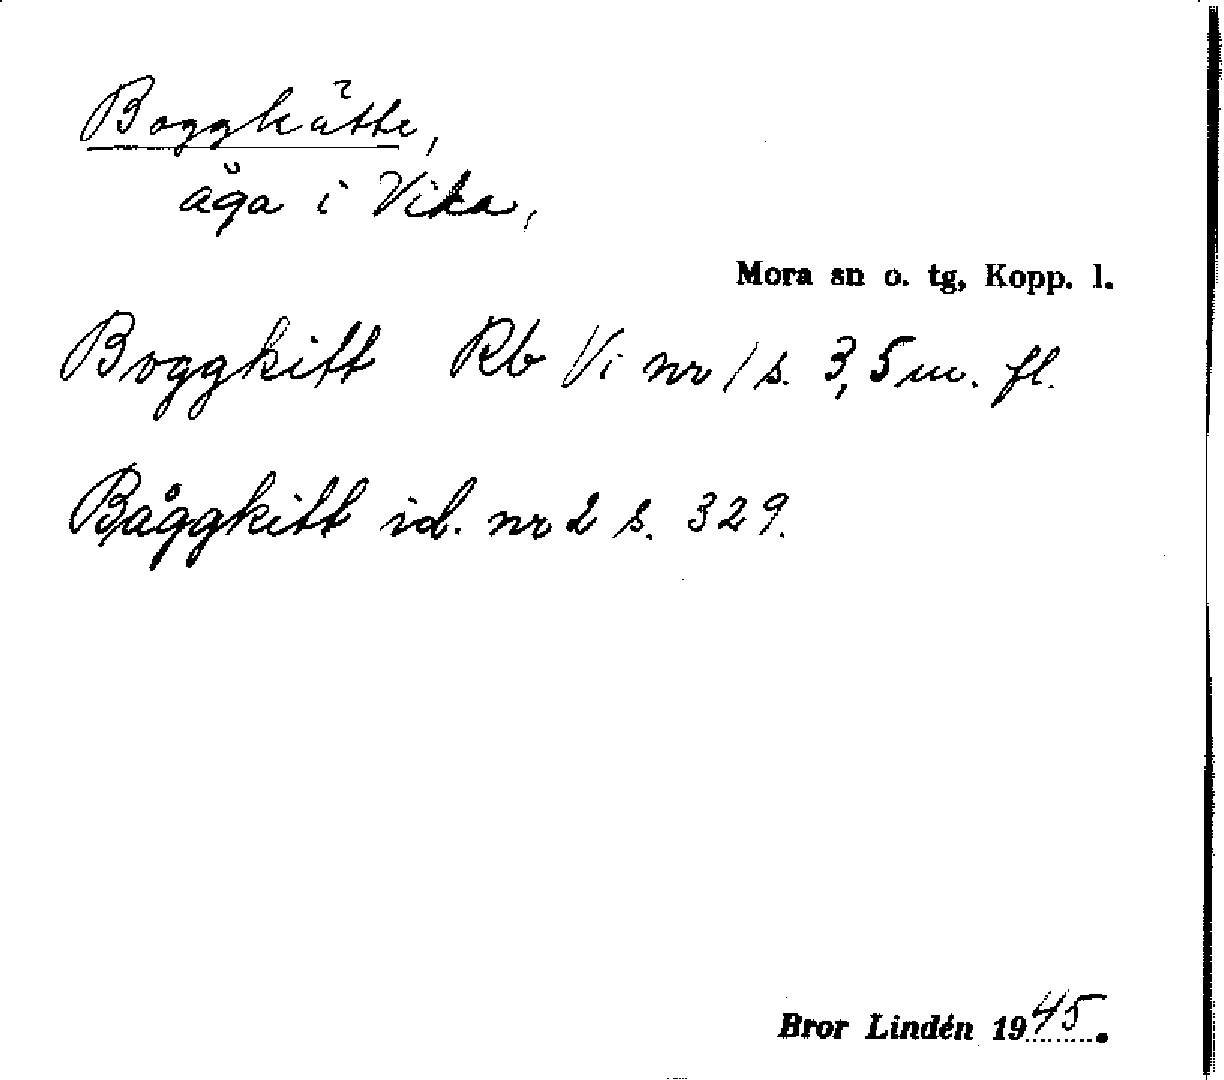 Boggkätte,
äga i Vika,
Mora sn o. tg, Kopp. l.
Boggkitt Rb Vi nr 1 s. 3, 5 m. fl.
Båggkitt id. nr 2 s. 329.
Bror Lindén 1945.